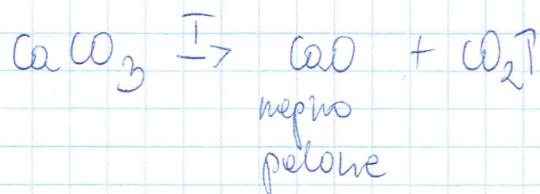 CaCO₃ T→ CaO + CO₂↑
wapno
palone